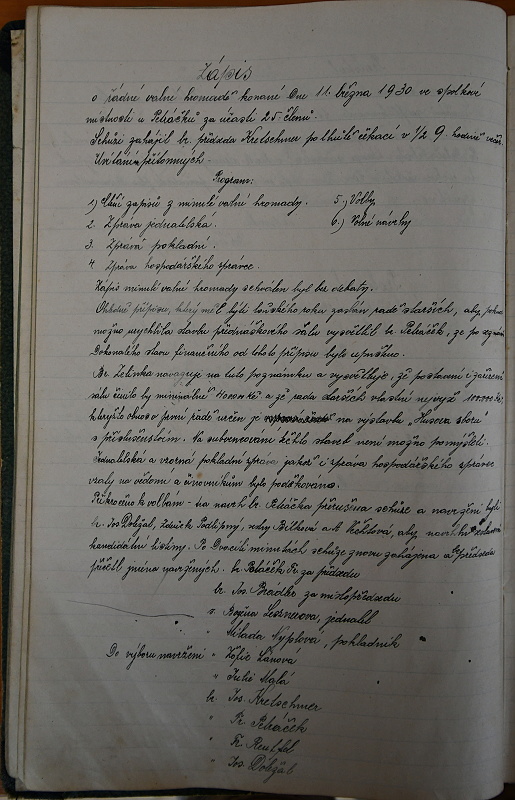 Zápis
o řádné valné hromadě konané dne 11. března 1930 ve spolkové
místnosti u Petráčků za účasti 25 členů.
Schůzi zahájil br. předseda Kretschmer po lhůtě čekací v 1/2 9. hodině večer.
Uvítání přítomných.
Program:
1) Čtení zápisů z minulé valné hromady. 5.) Volby
2. Zpráva jednatelská. 6.) Volné návrhy
3. Zpráva pokladní.
4. Zpráva hospodářského správce.
Zápis minulé valné hromady schválen byl bez debaty.
Ohledně přípisu, který měl býti loňského roku zaslán radě starších, aby pokud
možno urychlila stavbu přednáškového sálu vysvětlil br. Petráček, že po seznání
dokonalého stavu finančního od tohoto přípisu bylo upuštěno.
Br. Zelinka navazuje na tuto poznámku a vysvětluje, že postavení i zařízení
sálu činilo by minimálně a že rada starších vlastní nejvýš 100.000 Kč,
kterýžto obnos v první řadě určen je na výstavbu "Husova sboru"
s příslušenstvím. Na subvencování těchto staveb není možno pomýšleti.
Jednatelská a vzorná pokladní zpráva jakož i zpráva hospodářského správce
vzaty na vědomí a činovníkům bylo poděkováno.
Přikročeno k volbám - na návrh br. Petráčka přerušena schůze a navrženi byli
br. Jos. Doležal, Zdeněk Podlipný, sestry Bílková a A. aby navrhli
kandidátní listiny. Po dvaceti minutách schůze znovu zahájena a předseda
přečtl jména navržených. br. Petráček Fr. za předsedu
br. Jos. Brádler za místopředsedu
s. Božena jednatel
" Milada Nyplová, pokladník
Do výboru navrženi " Žofie Lánová
" Julie Malá
br. Jos. Kretschmer
" Fr. Petráček
" Fr.
" Jos. Doležal